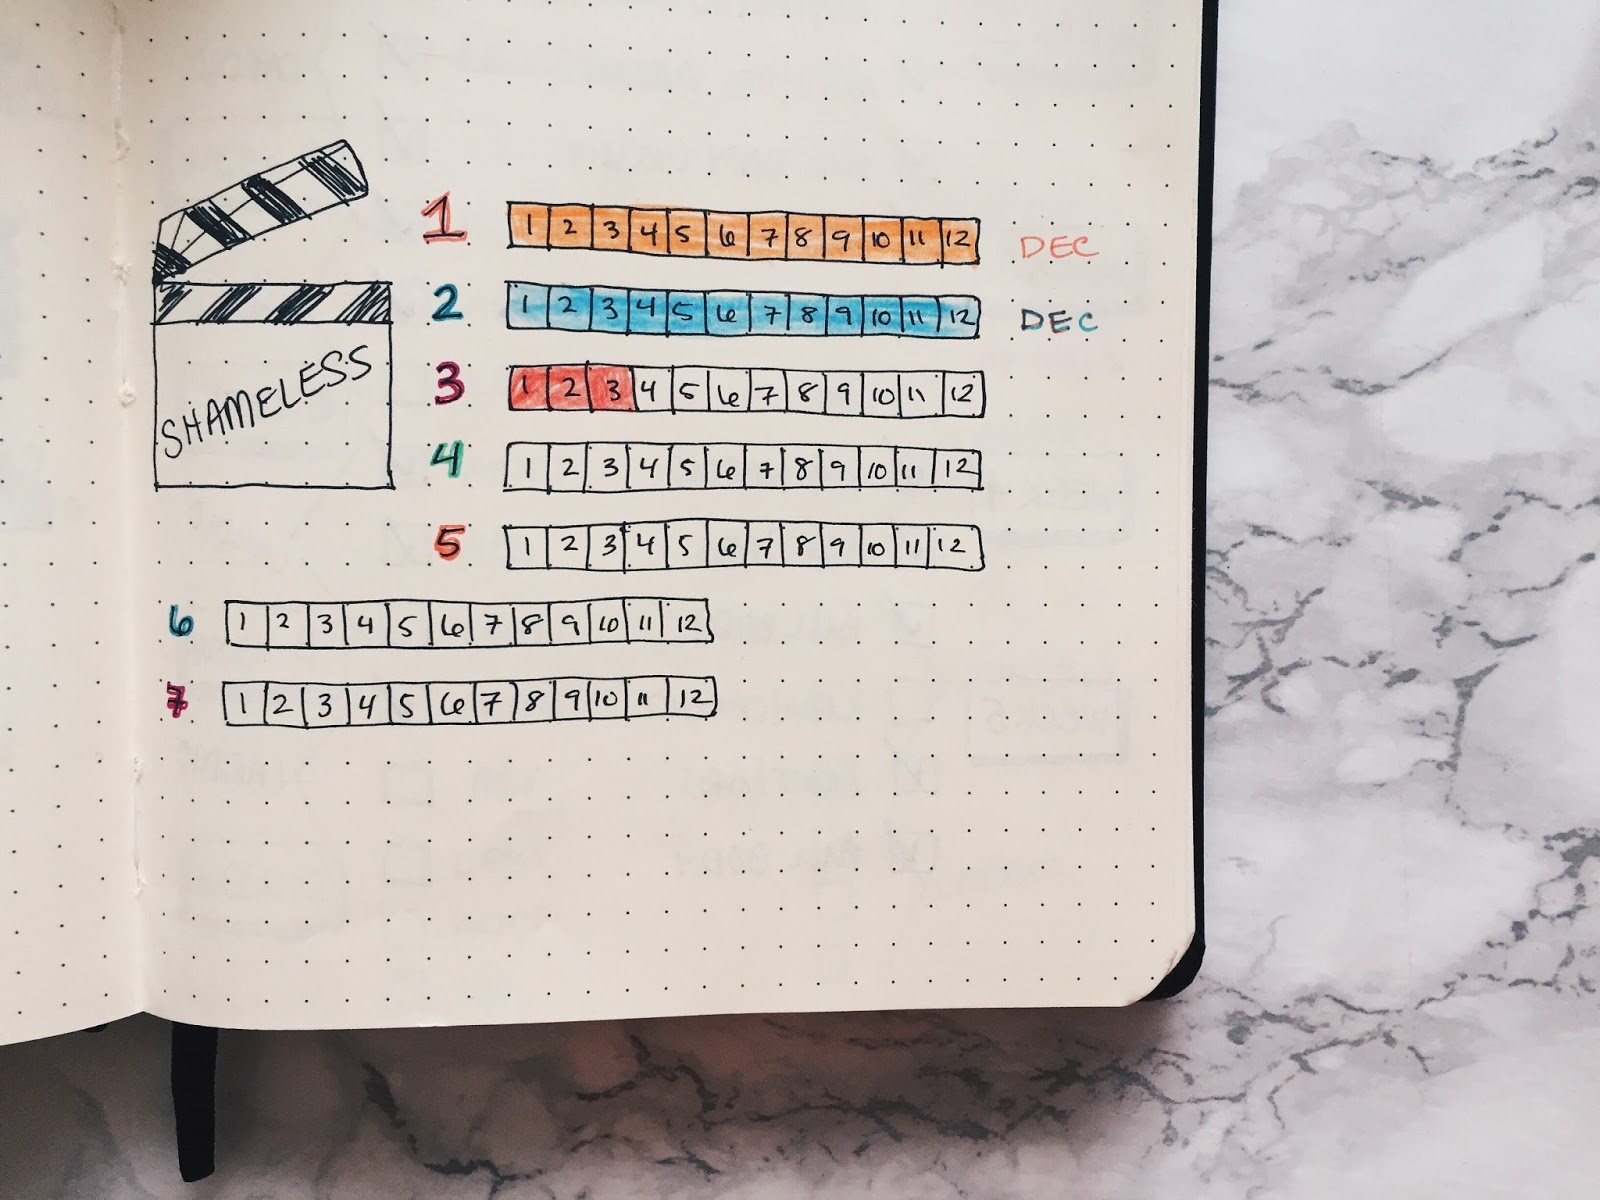 SHAMELESS
1 1 2 3 4 5 6 7 8 9 10 11 12 DEC
2 1 2 3 4 5 6 7 8 9 10 11 12 DEC
3 1 2 3 4 5 6 7 8 9 10 11 12
4 1 2 3 4 5 6 7 8 9 10 11 12
5 1 2 3 4 5 6 7 8 9 10 11 12
6 1 2 3 4 5 6 7 8 9 10 11 12
7 1 2 3 4 5 6 7 8 9 10 11 12